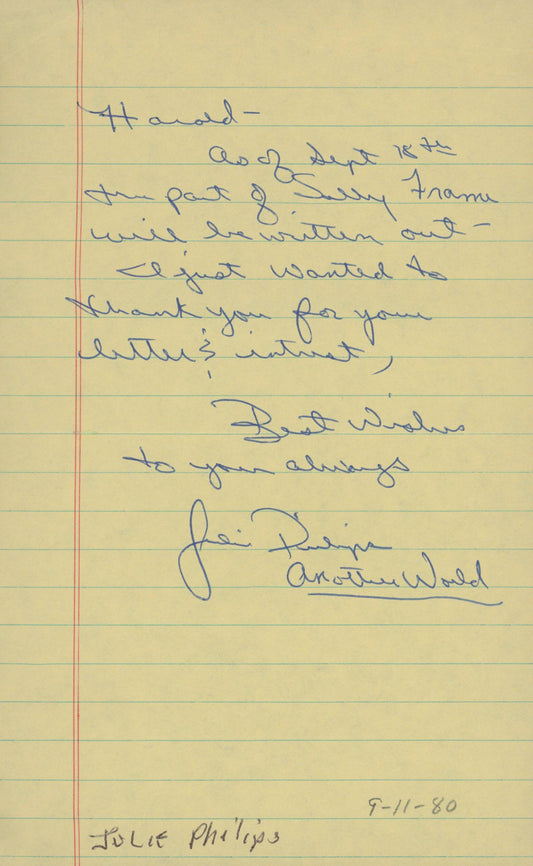 Harold -
As of Sept 18th
the part of Sally Frame
will be written out -
I just wanted to
thank you for your
letter & intrest,
Best Wishes
to you always
Julie Philips
Another World
9-11-80
JULIE Philips